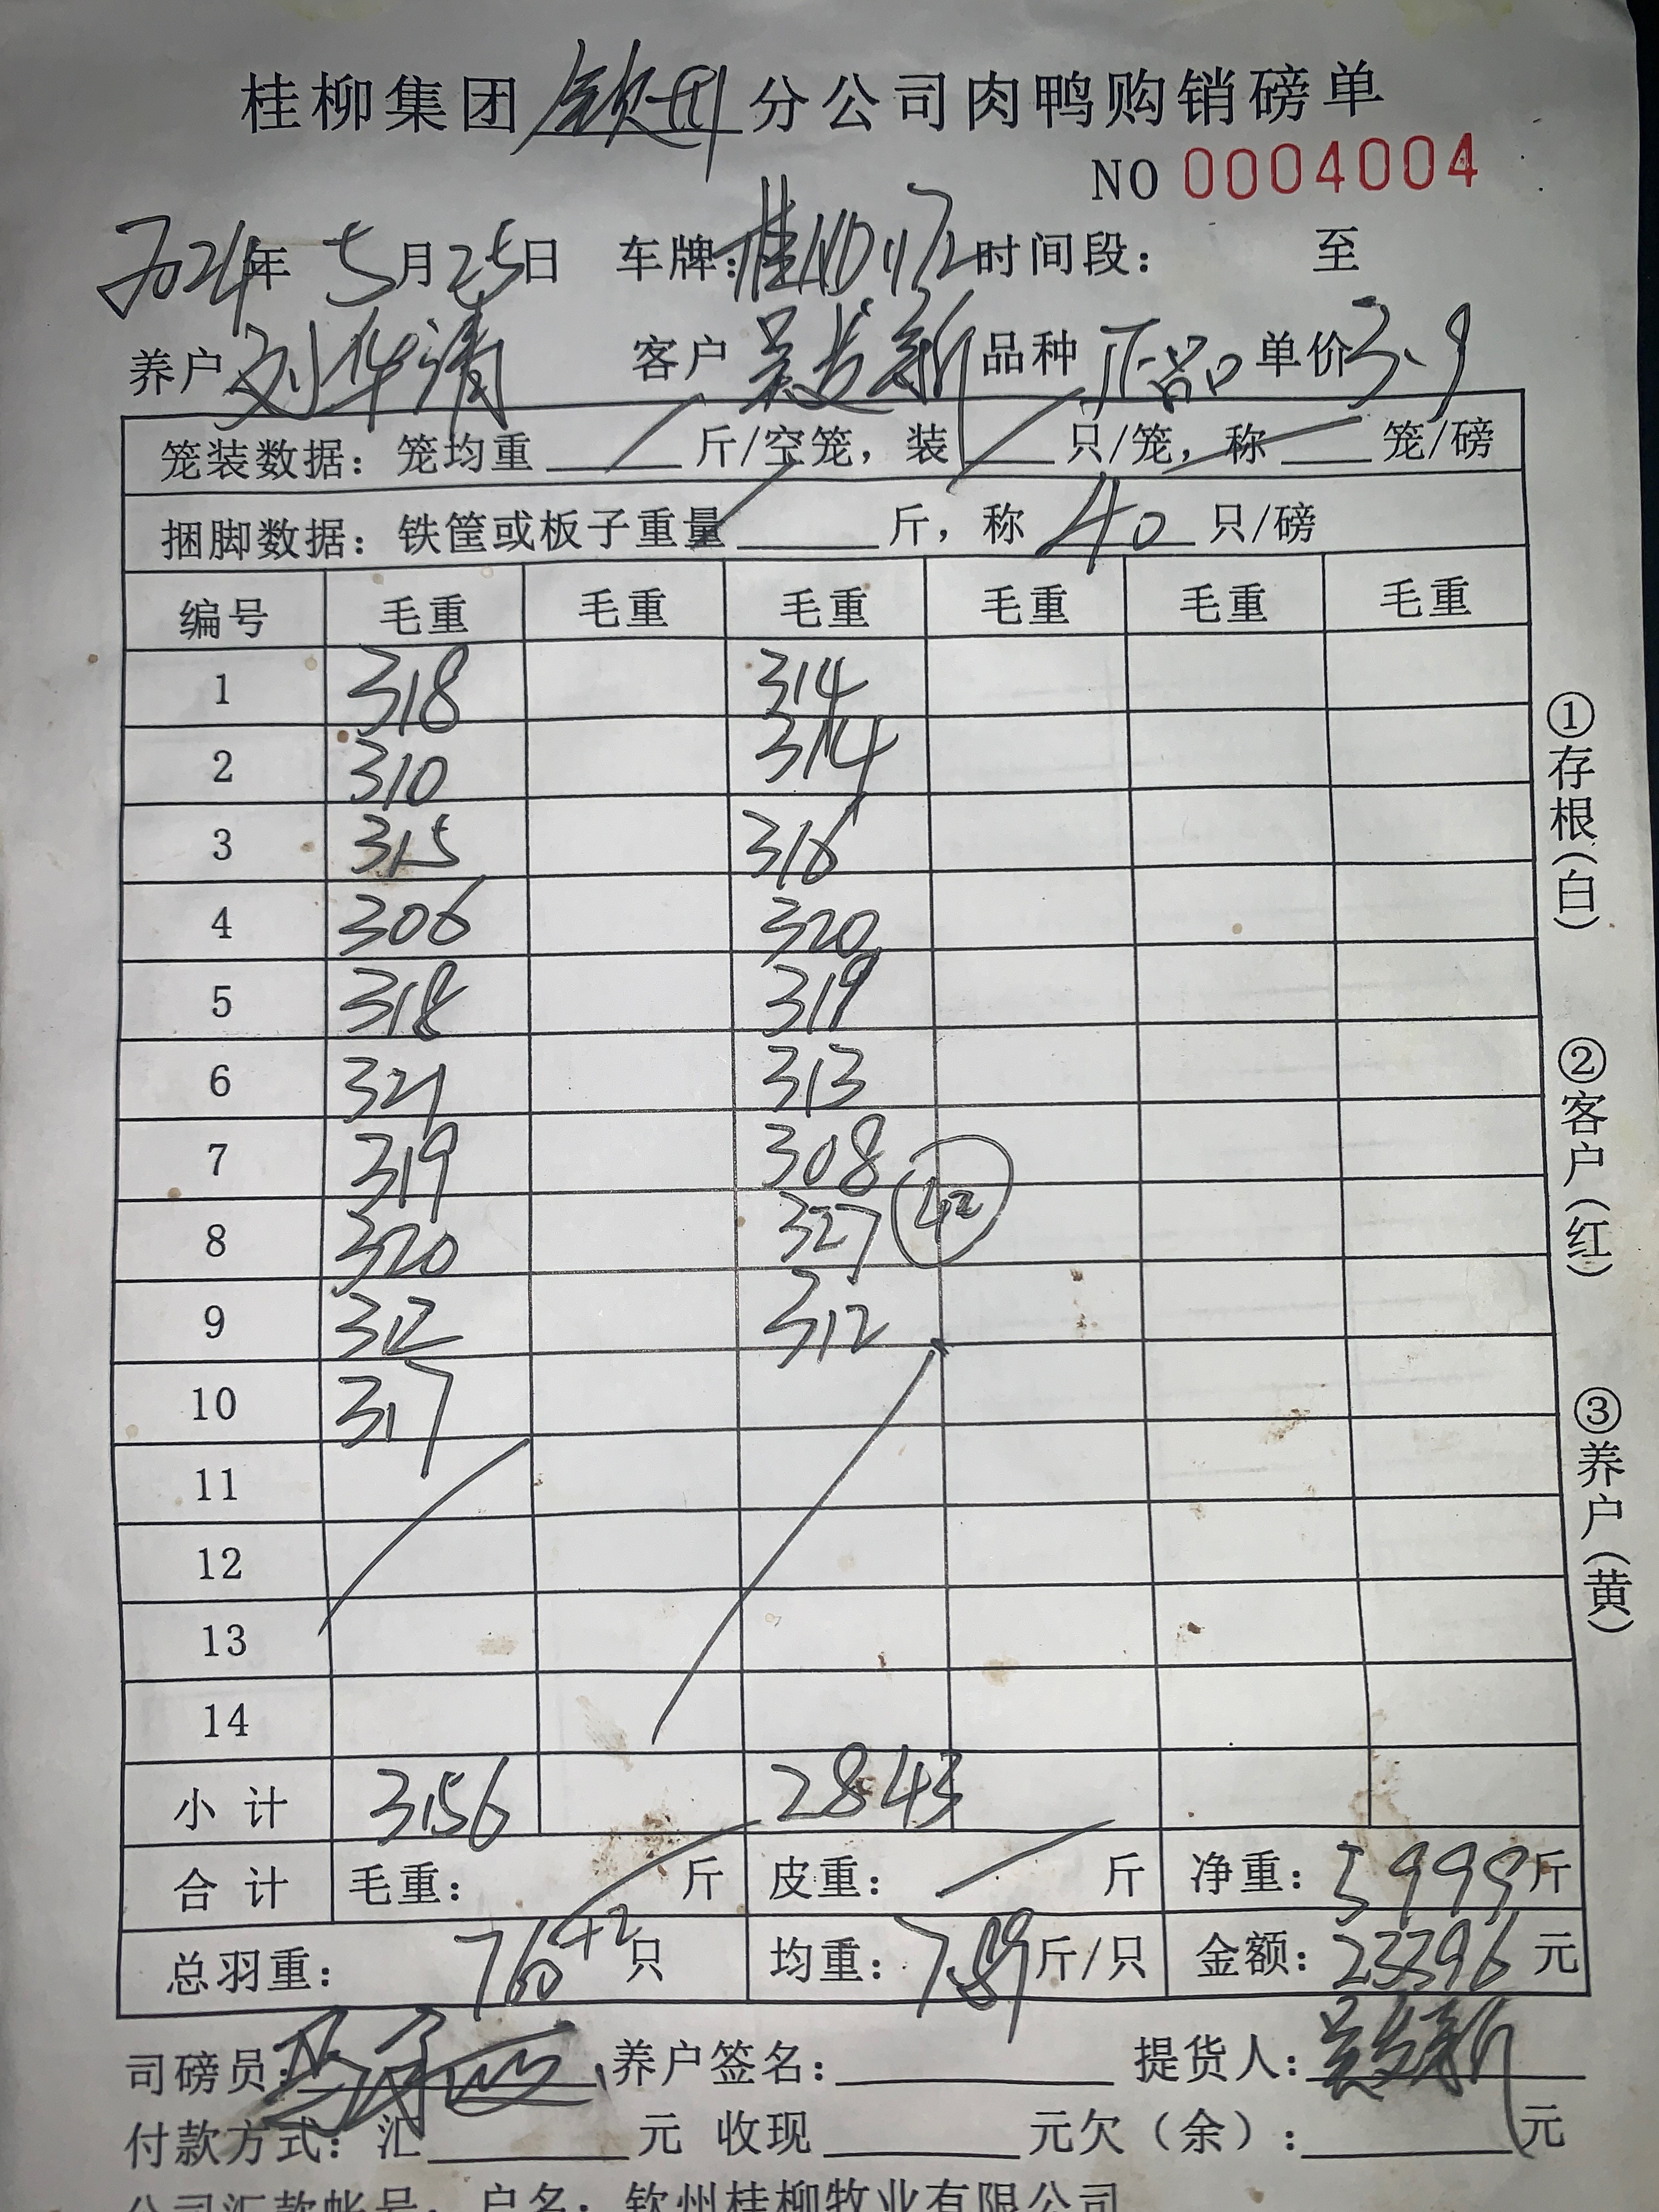 桂柳集团 钦州 分公司肉鸭购销磅单
NO 0004004
2024年 5月25日 车牌: 时间段: 至
养户 刘华清 客户 吴发新 品种 正品 单价3.9
笼装数据: 笼均重 斤/空笼, 装 只/笼, 称 笼/磅
捆脚数据: 铁筐或板子重量 斤, 称 40 只/磅
编号 毛重 毛重 毛重 毛重 毛重 毛重
1 318 314
2 310 314
3 315 316
4 306 320
5 318 319
6 321 313
7 319 308
8 320 327 42
9 312 312
10 317
11
12
13
14
小计 3156 2843
合计 毛重: 斤 皮重: 斤 净重: 5999斤
总羽重: 760+2只 均重: 7.89斤/只 金额: 23396元
司磅员: 养户签名: 提货人: 吴发新
付款方式: 汇 元 收现 元欠(余): 元
公司汇款帐号: 户名: 钦州桂柳牧业有限公司
①存根(白)
②客户(红)
③养户(黄)